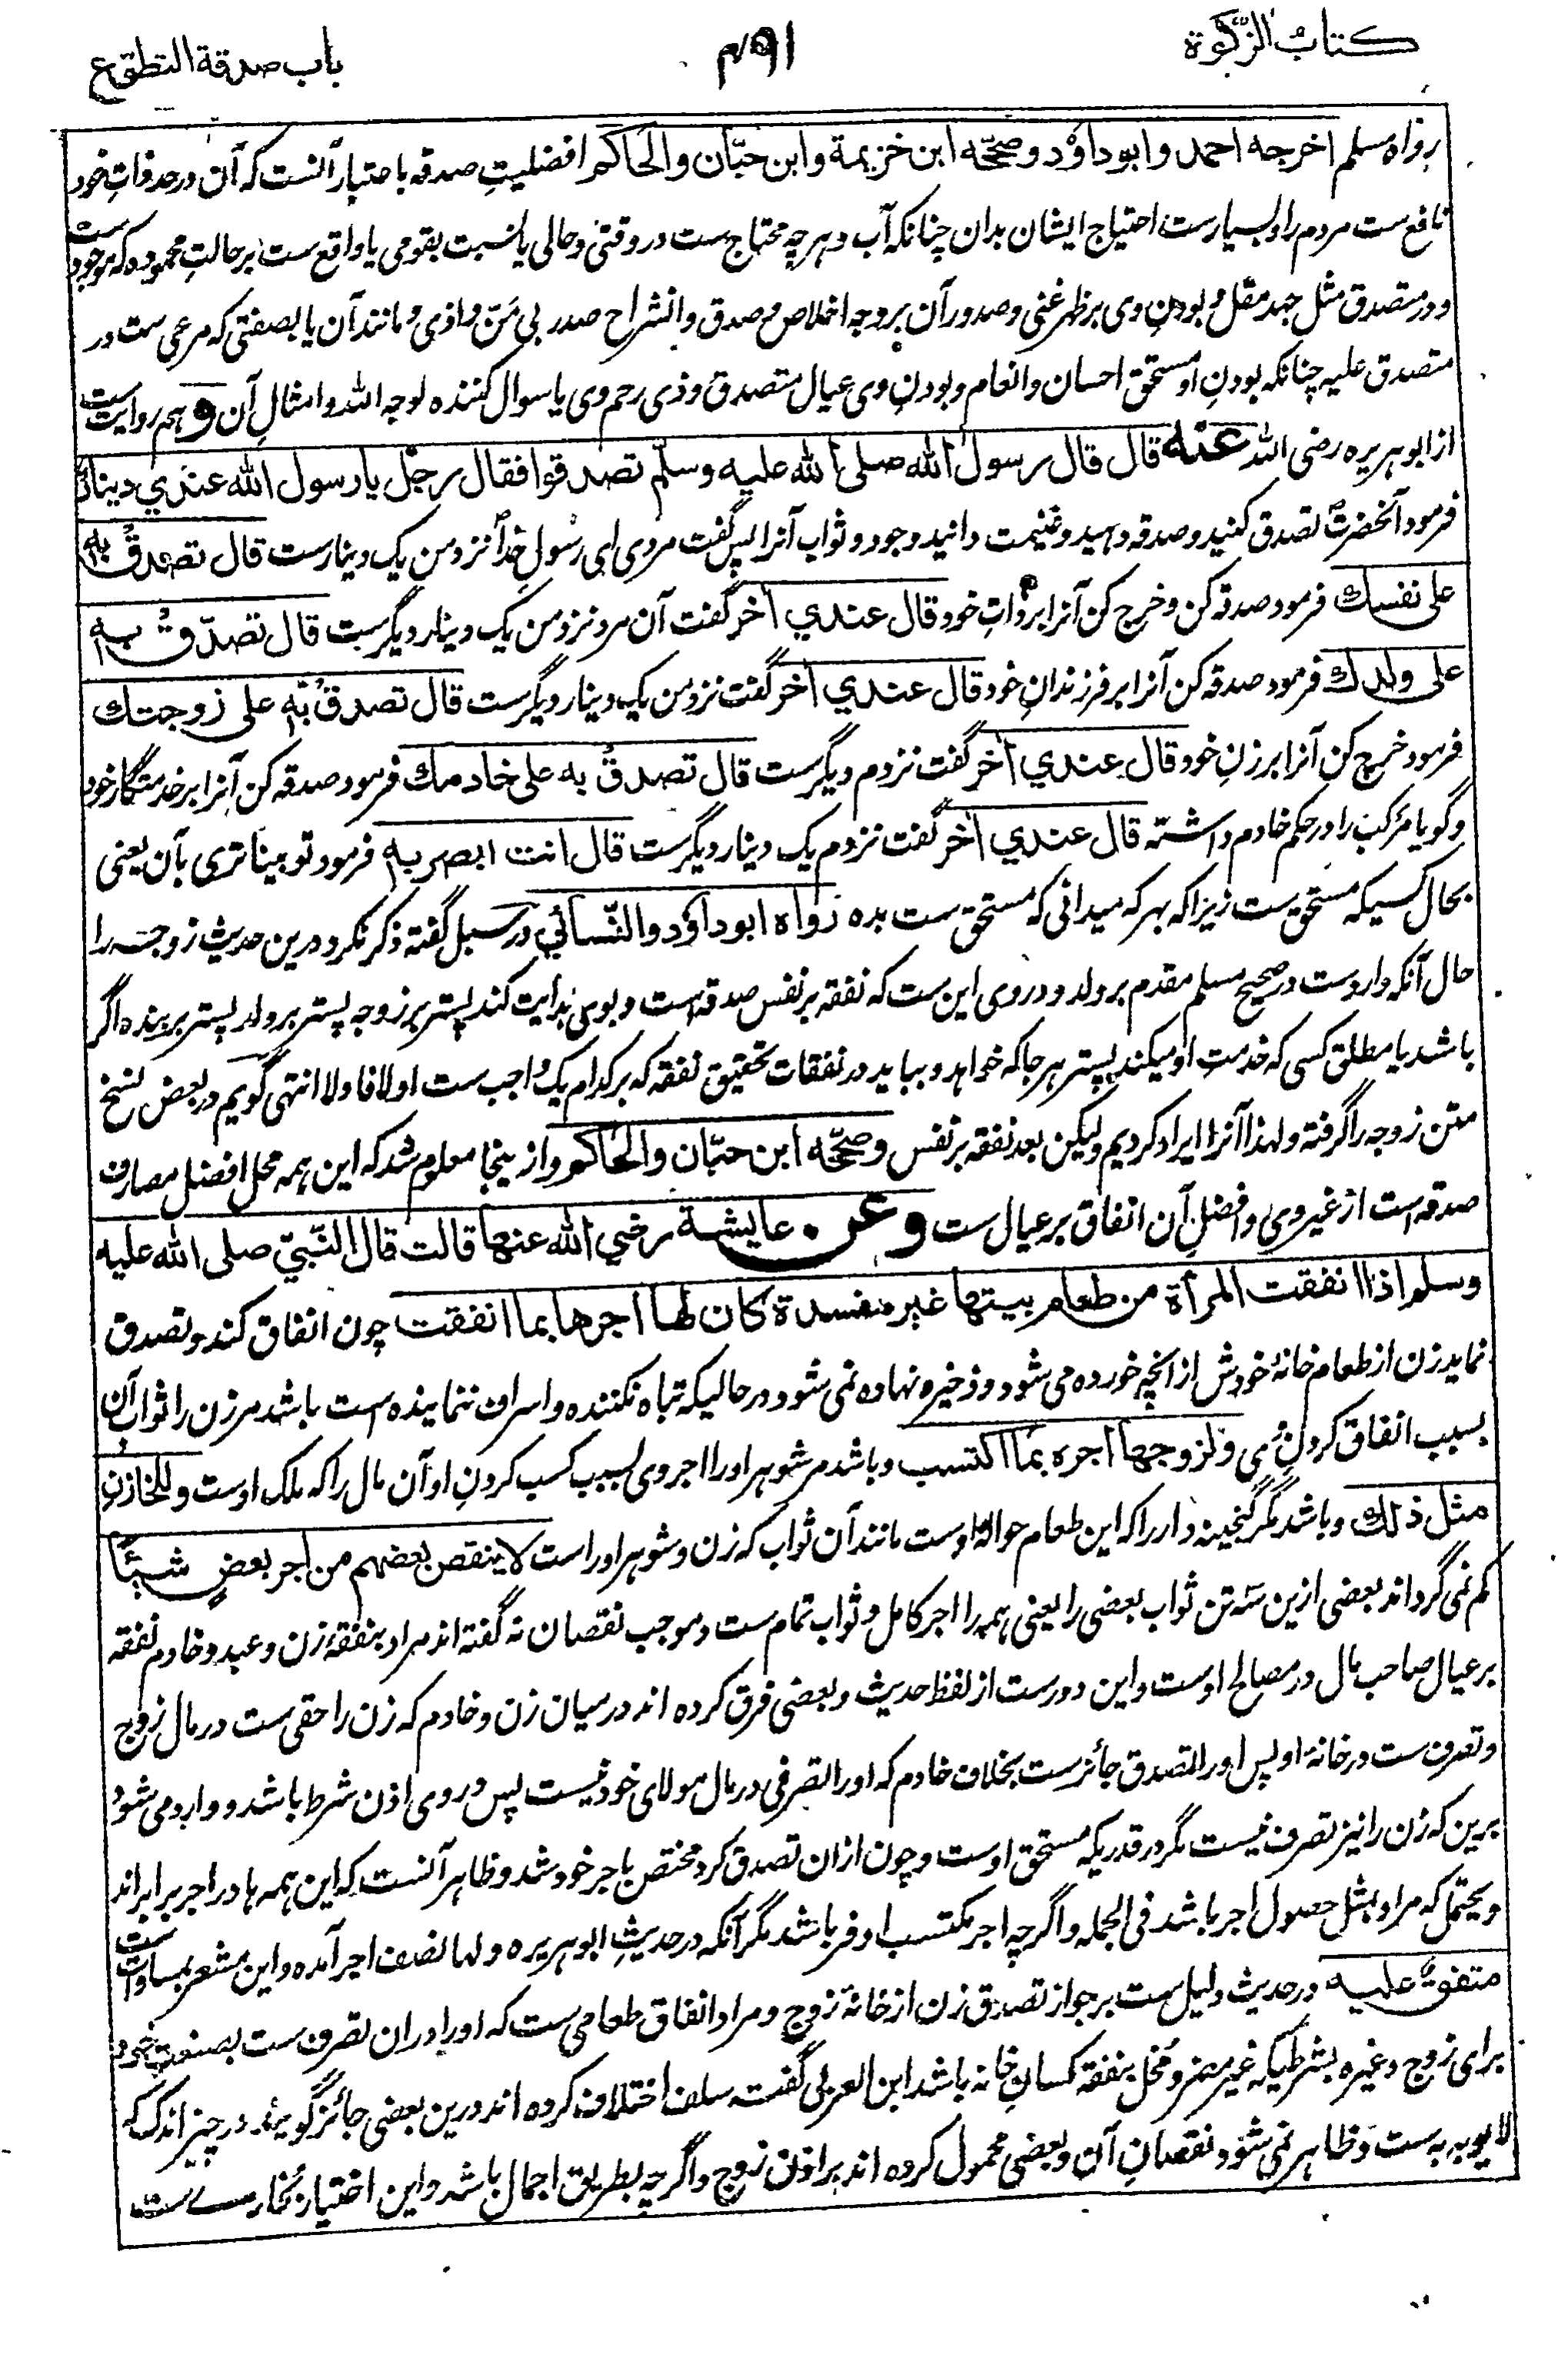 کتاب الزکوة
۴۹۱
باب صدقة التطوع
رواه مسلم اخرجه احمد وابوداؤد وصححه ابن خزيمة وابن حبّان والحاكم افضلیتِ صدقه باعتبار آنست که آن در حد ذاتِ خود
نافع ست مردم را و بسیارست احتیاج ایشان بدان چنانکه آب و هرچه محتاج ست در وقتی و حالی یا نسبت بقومی یا واقع ست بر حالتِ محموده که موجود ست
و در متصدق مثل جهد مقل و بودنِ وی بر ظهر غنی و صدور آن بر وجه اخلاص و صدق و انشراح صدر بی مَنّ و اذی و مانند آن یا بصفتی که مرعی ست در
متصدق علیه چنانکه بودنِ او مستحق احسان و انعام و بودنِ وی عیال متصدق و ذی رحم وی یا سوال کننده لوجه الله و امثالِ آن و هم روایت ست
از ابوهریره رضی الله عنه قال قال رسول الله صلى الله عليه وسلّم تصدقوا فقال رجل يا رسول الله عندي دينار
فرمود آنحضرت تصدق کنید و صدقه دهید و غنیمت دانید وجود و ثواب آنرا پس گفت مردی ای رسولِ خدا نزد من یک دینارست قال تصدق به
على نفسك فرمود صدقه کن و خرج کن آنرا بر ذاتِ خود قال عندي آخر گفت آن مرد نزد من یک دینار دیگرست قال تصدّق به
على ولدك فرمود صدقه کن آنرا بر فرزندانِ خود قال عندي آخر گفت نزد من یک دینار دیگرست قال تصدق به على زوجتك
فرمود خرج کن آنرا بر زنِ خود قال عندي آخر گفت نزدم دیگرست قال تصدق به على خادمك فرمود صدقه کن آنرا بر خدمتگار خود
و گویا مرکب را در حکم خادم داشته قال عندي آخر گفت نزدم یک دینار دیگرست قال انت ابصر به فرمود تو بیناتری بآن یعنی
بحال کسیکه مستحق ست زیرا که بهرکه میدانی که مستحق ست بده رواه ابوداؤد والنّسائي در سبل گفته ذکر نکرد درین حدیث زوجه را
حال آنکه واردست در صحیح مسلم مقدم بر ولد و در وی این ست که نفقه بر نفس صدقه است و بوی بدایت کند پستر بر زوجه پستر بر ولد پستر بر بنده اگر
باشد یا مطلق کسی که خدمتِ او میکند پستر هر جا که خواهد و بیاید در نفقات تحقیق نفقه که بر کدام یک واجب ست اولا فاولا انتهی گویم در بعض نسخ
متن زوجه را گرفته و لهذا آنرا ایراد کردیم ولیکن بعد نفقه بر نفس وصحّحه ابن حبّان والحاكم و ازینجا معلوم شد که این همه محل افضل مصارف
صدقه است از غیر وی و افضلِ آن انفاق بر عیال ست وعن عایشة رضي الله عنها قالت قال النّبيّ صلى الله عليه
وسلم اذا انفقت المرأة من طعام بيتها غير مفسدة كان لها اجرها بما انفقت چون انفاق کند و تصدق
نماید زن از طعام خانهٔ خودش از انچه خورده می شود و ذخیره نهاده نمی شود در حالیکه تباه نکننده و اسراف ننماینده است باشد مر زن را ثواب آن
بسبب انفاق کردنِ وی ولزوجها اجره بما اكتسب و باشد مر شوهر او را اجر وی بسبب کسب کردنِ او آن مال را که ملک اوست وللخازن
مثل ذلك و باشد مر گنجینه دار را که این طعام حواله اوست مانند آن ثواب که زن و شوهر او راست لا ينقص بعضهم من اجر بعضٍ شيئًا
کم نمی گرداند بعضی ازین سه تن ثواب بعضی را یعنی همه را اجر کامل و ثواب تمام ست و موجب نقصان نه گفته اند مراد بنفقهٔ زن و عبد و خادم نفقه
بر عیال صاحب مال در مصالح اوست و این دورست از لفظ حدیث و بعضی فرق کرده اند در میان زن و خادم که زن را حقی ست در مال زوج
و تصرف ست در خانهٔ او پس او را تصدق جائزست بخلاف خادم که او را تصرفی در مال مولای خود نیست پس در وی اذن شرط باشد و وارد می شود
برین که زن را نیز تصرف نیست مگر در قدریکه مستحق اوست و چون ازان تصدق کرد مختص باجر خود شد و ظاهر آنست که این همه ها در اجر برابراند
و یحتمل که مراد بمثل حصول اجر باشد فی الجمله و اگرچه اجر مکتسب اوفر باشد مگر آنکه در حدیثِ ابوهریره ولها نصف اجر آمده و این مشعر بمساوات ست
متفق عليه در حدیث دلیل ست بر جواز تصدق زن از خانهٔ زوج و مراد انفاق طعامی ست که او را دران تصرف ست بصنعتِ خود
برای زوج و غیره بشرطیکه غیر مضر و مخل بنفقه کسانِ خانه باشد ابن العربی گفته سلف اختلاف کرده اند درین بعضی جائز گویند در چیز اندک که
لا یوبه به ست و ظاهر نمی شود نقصانِ آن و بعضی محمول کرده اند بر اذنِ زوج و اگرچه بطریق اجمال باشد و این اختیار بخاری ست